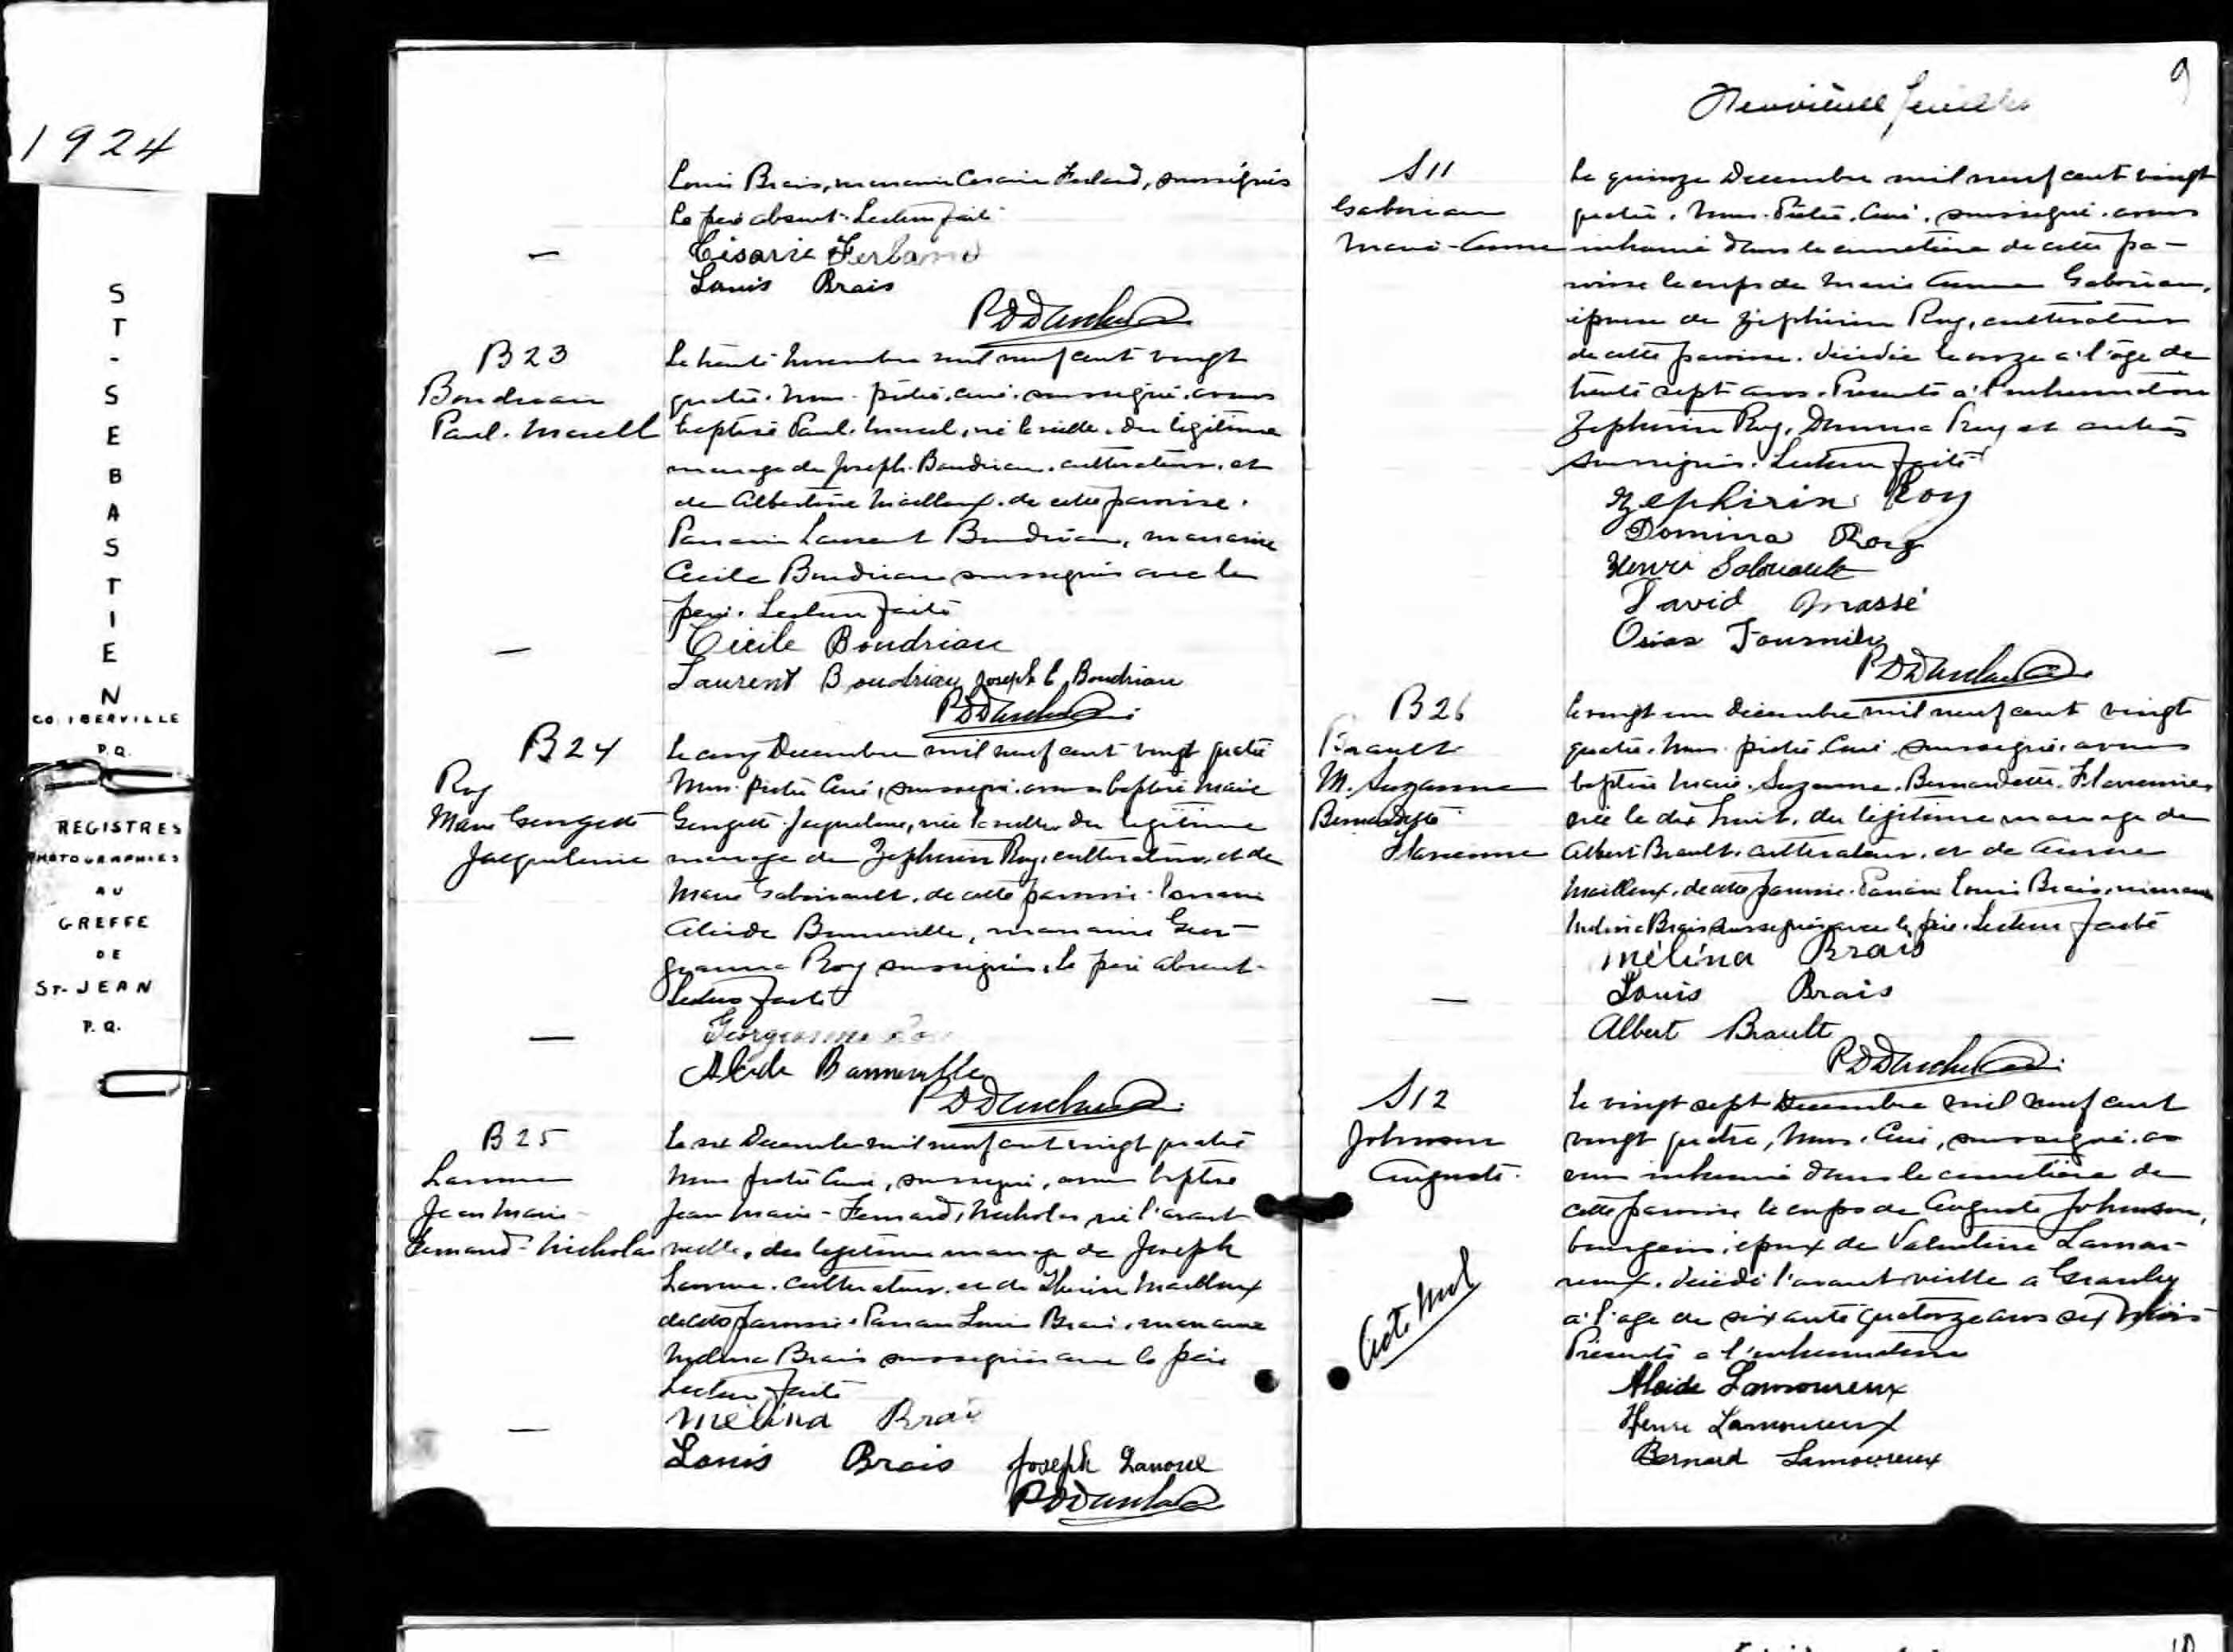 1924
ST-SEBASTIEN
CO. IBERVILLE
P.Q.
REGISTRES
PHOTOGRAPHIES
AU
GREFFE
DE
ST-JEAN
P.Q.
Louis Brais, marraine Ferland, soussignés
Le père absent. Lecture faite
Ferland
Louis Brais
B23
Boudreau
Paul. Marcell
Le trente Novembre mil neuf cent vingt
quatre. Nous. prêtre. curé. soussigné. avons
baptisé Paul. Marcel, né la veille. du légitime
mariage de Joseph. Boudriau. cultivateur. et
de Albertine Mailloux. de cette paroisse.
Parrain Laurent Boudriau, marraine
Cécile Boudriau soussignés avec le
père. Lecture faite
Cécile Boudriau
Laurent Boudriau Joseph E. Boudriau
B24
Roy
Marie Georgette
Jacqueline
Le cinq Décembre mil neuf cent vingt quatre
Nous. prêtre Curé, soussigné. avons baptisé Marie
Georgette. Jacqueline, née la veille du légitime
mariage de Zéphirin Roy, cultivateur. et de
Marie Gabouriault. de cette paroisse. Parrain
Alcide Bonneville, marraine Geor-
gianna Roy soussignés. le père absent.
Lecture faite
Georgianna Roy
Alcide Bonneville
B25
Lanoue
Jean Marie-
Fernand-Nicholas
Le six Décembre mil neuf cent vingt quatre
Nous prêtre Curé, soussigné, avons baptisé
Jean Marie-Fernand, Nicholas né l'avant
veille, du légitime mariage de Joseph
Lanoue. cultivateur. et de Mailloux
de cette paroisse. Parrain Louis Brais. marraine
Mélina Brais soussignés avec le père
Lecture faite
Mélina Brais
Louis Brais Joseph Lanoue
9
Neuvième feuillet
S11
Gaboriau
Marie-Anne
Le quinze Décembre mil neuf cent vingt
quatre. Nous. Prêtre. Curé. soussigné. avons
inhumé dans le cimetière de cette pa-
roisse le corps de Marie Anne Gaboriau,
épouse de Zéphirin Roy, cultivateur
de cette paroisse. décédée le onze à l'âge de
trente sept ans. Présents à l'inhumation
Zéphirin Roy, Domina Roy et autres
soussignés. Lecture faite
Zephirin Roy
Domina Roy
Henri
David Massé
Osias Fournier
B26
Brault
M. Suzanne
Bernadette
Florienne
Le vingt un décembre mil neuf cent vingt
quatre. Nous. prêtre. Curé soussigné. avons
baptisé Marie. Suzanne. Bernadette. Florienne
née le dix huit. du légitime mariage de
Albert Brault. cultivateur. et de
Mailloux. de cette paroisse. Parrain Louis Brais. marraine
Mélina Brais soussignés avec le père. Lecture faite
Mélina Brais
Louis Brais
Albert Brault
S12
Johnson
Auguste.
Acte Nul
Le vingt sept Décembre mil neuf cent
vingt quatre, Nous. Curé, soussigné. a-
vons inhumé dans le cimetière de
cette paroisse le corps de Auguste Johnson,
bourgeois. époux de Valentine Lamou-
reux. décédé l'avant veille a Granby
à l'age de soixante quatorze ans six mois
Présents a l'inhumation
Alcide Lamoureux
Henri Lamoureux
Bernard Lamoureux